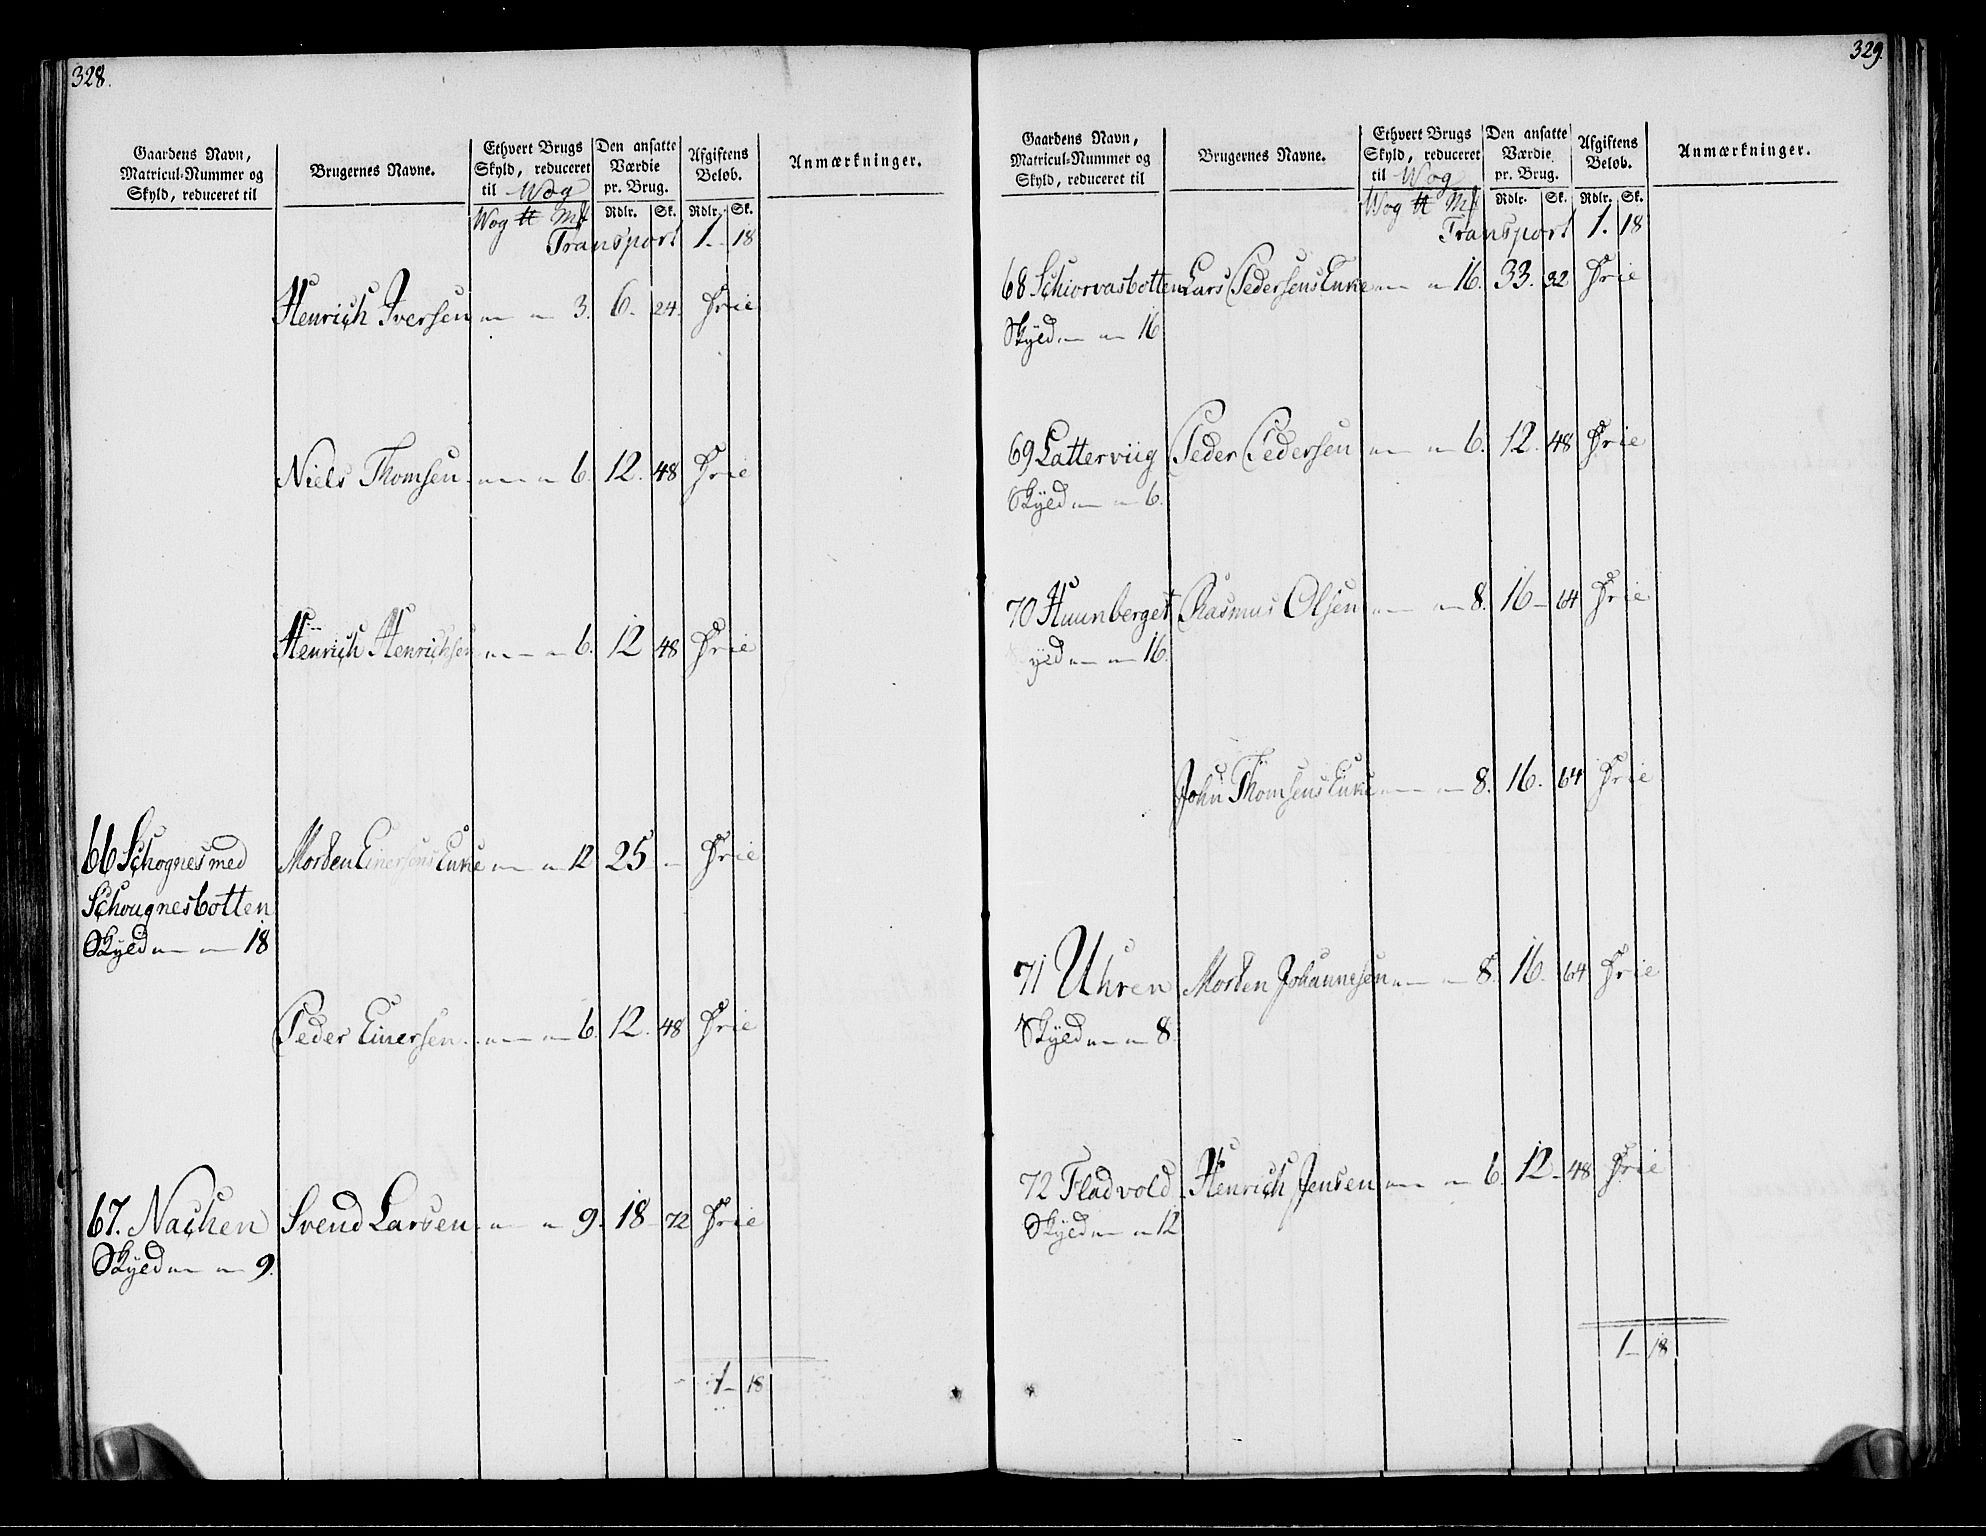 328.
Gaardens Navn, Matricul-Nummer og Skyld, reduceret til
Brugernes Navne.
Ethvert Brugs Skyld, reduceret til Wog
Den ansatte Værdie pr. Brug.
Afgiftens Beløb.
Anmærkninger.
Wog ℔ Mk Rdlr. Sk. Rdlr. Sk.
Transport 1. - 18
Henrich Iversen " " 3. 6. 24. Frie
Niels Thomsen " " 6. 12. 48 Frie
Henrich Henrichsen " " 6. 12 48 Frie
66 Schognes med Morten Einersens Enke " " 12 25 - Frie
Schougnesbotten
Skyld " " 18
Peder Einersen " " 6. 12. 48 Frie
67. Nachen Svend Larsen " " 9. 18 - 72 Frie
Skyld " " 9.
1 - 18
329.
Gaardens Navn, Matricul-Nummer og Skyld, reduceret til
Brugernes Navne.
Ethvert Brugs Skyld, reduceret til Wog
Den ansatte Værdie pr. Brug.
Afgiftens Beløb.
Anmærkninger.
Wog ℔ Mk Rdlr. Sk. Rdlr. Sk.
Transport 1. 18
68 Schiorvasbotten Lars Pedersens Enke " " 16. 33. 32 Frie
Skyld " " 16
69 Latterviig Peder Pedersen " " 6. 12. 48 Frie
Skyld " " 6.
70 Huunberget Rasmus Olsen " " 8. 16 - 64 Frie
yld " " 16.
John Thomsens Enke " " 8. 16. 64 Frie
71 Uhren Morten Johannesen " " 8. 16. 64 Frie
Skyld " " 8.
72 Fladvold Henrich Jensen " " 6. 12 - 48 Frie
Skyld " " 12
1 - 18